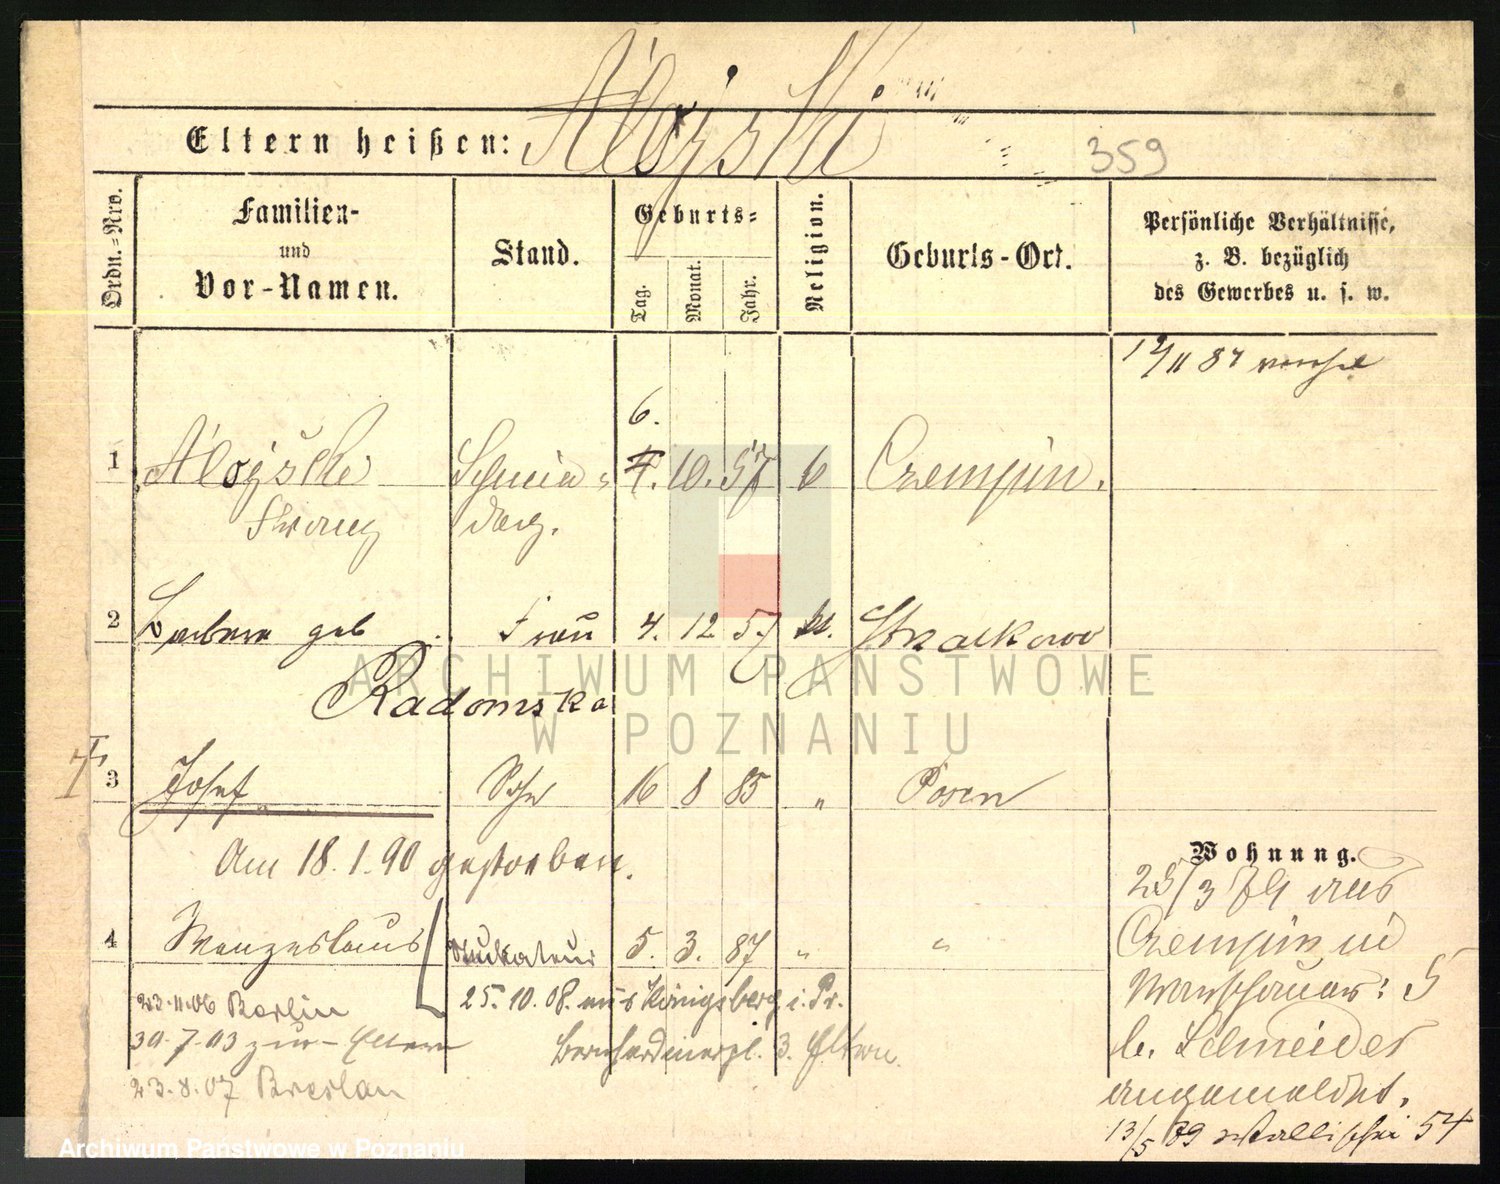 Aloyski
Eltern heißen:
359
Ordn.-Nro.
Familien-
und
Vor-Namen.
Stand.
Geburts-
Tag.
Monat.
Jahr.
Religion.
Geburts-Ort.
Persönliche Verhältnisse,
z. B. bezüglich
des Gewerbes u. s. w.
12/11 87
6.
1 Aloyski Schnei- 7. 10. 57 k Czempin.
Franz der
2 Barbara geb Frau 4. 12. 57 kl. Strzalkowo
Radomska
3 Josef Sohn 16 8 85 " Posen
Am 18.1.90 gestorben.
4 Wenzeslaus Stuckateur 5. 3. 87 " "
23.11.06 Berlin
25.10.08. aus Königsberg i. Pr.
30.7.03 zur Eltern
Bernhardinerpl. 3. Eltern.
23.8.07 Breslau
Wohnung.
25/3 79 aus
Czempin in
Warschauer: 5
b. Schneider
angemeldet.
13/5 89 Wallischei 54
ARCHIWUM PAŃSTWOWE
W POZNANIU
Archiwum Państwowe w Poznaniu